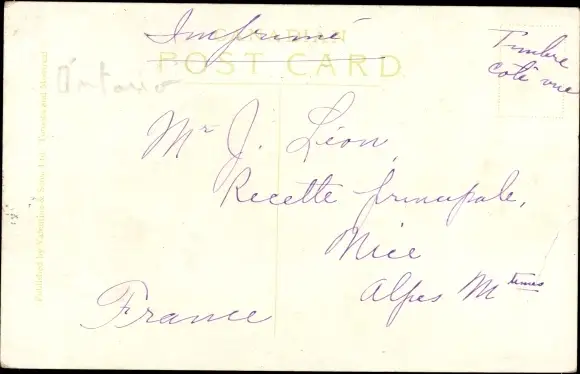 Imprimé
CANADIAN
POST CARD
Timbre
coté vue
Ontario
Mr J. Léon,
Recette principale,
Nice
Alpes Mtimes
France
Published by Valentine & Sons, Ltd. Toronto and Montreal